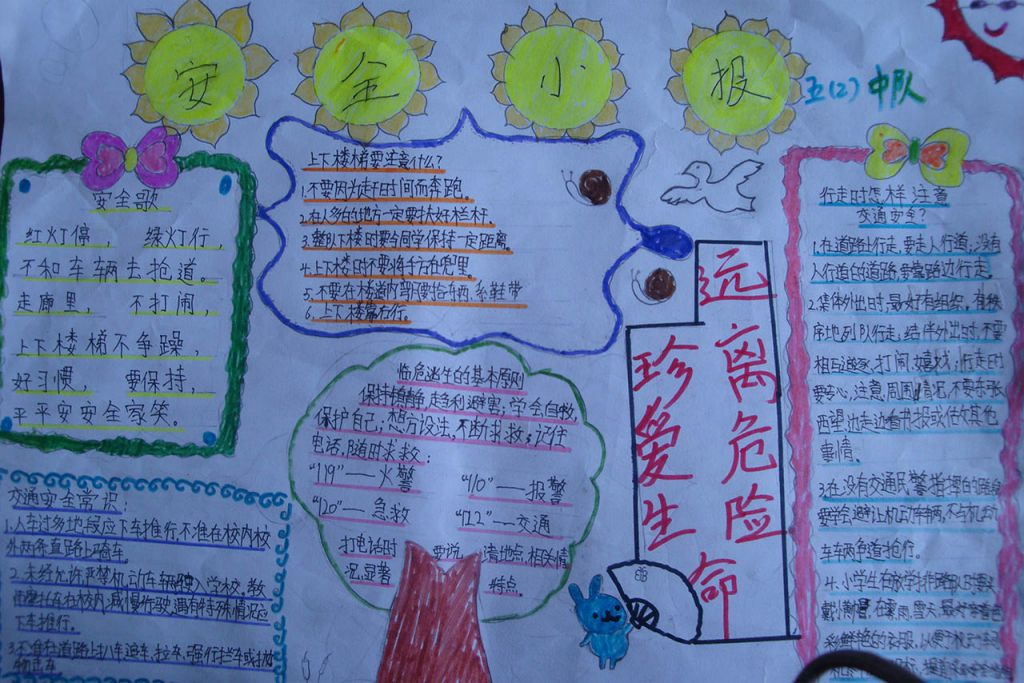 安全小报
五(2)中队
安全歌
红灯停， 绿灯行，
不和车辆去抢道。
走廊里， 不打闹，
上下楼梯不争躁，
好习惯， 要保持，
平平安安全家笑。
上下楼梯要注意什么？
1.不要因为赶时间而奔跑。
2.在人多的地方一定要扶好栏杆。
3.整队下楼时要与同学保持一定距离。
4.上下楼时不要将手放在兜里。
5.不要在楼道内弯腰拾东西、系鞋带
6.上下楼靠右行。
临危逃生的基本原则
保持镇静，趋利避害；学会自救，
保护自己；想方设法，不断求救；记住
电话，随时求救：
“119”——火警
“110”——报警
“120”——急救
“122”——交通
打电话时 要说 清地点，相关情
况，显著 特点。
远离危险
珍爱生命
交通安全常识：
1.人车过多地段应下车推行不准在校内校
外两条直路上骑车。
2.未经允许严禁机动车辆驶入学校，教
师摩托车在校内减慢行驶，遇有特殊情况应
下车推行。
3.不准在道路上扒车追车，拉车，强行拦车或抛
物击车
行走时怎样注意
交通安全？
1.在道路上行走，要走人行道；没有
人行道的道路，要靠路边行走。
2.集体外出时，最好有组织，有秩
序地列队行走；结伴外出时，不要
相互追逐、打闹、嬉戏；行走时
要专心，注意周围情况，不要东张
西望、边走边看书报或做其他
事情、
3.在没有交通民警指挥的路段
要学会避让机动车辆，不与机动
车车辆争道抢行。
4.小学生在放学排路队时要头
戴小黄帽，在雾，雨，雪天，最好穿着色
彩鲜艳的衣服，以便于机动车司